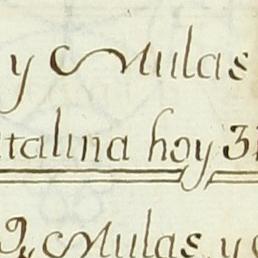 y Mulas
talina hoy 31
Mulas, y